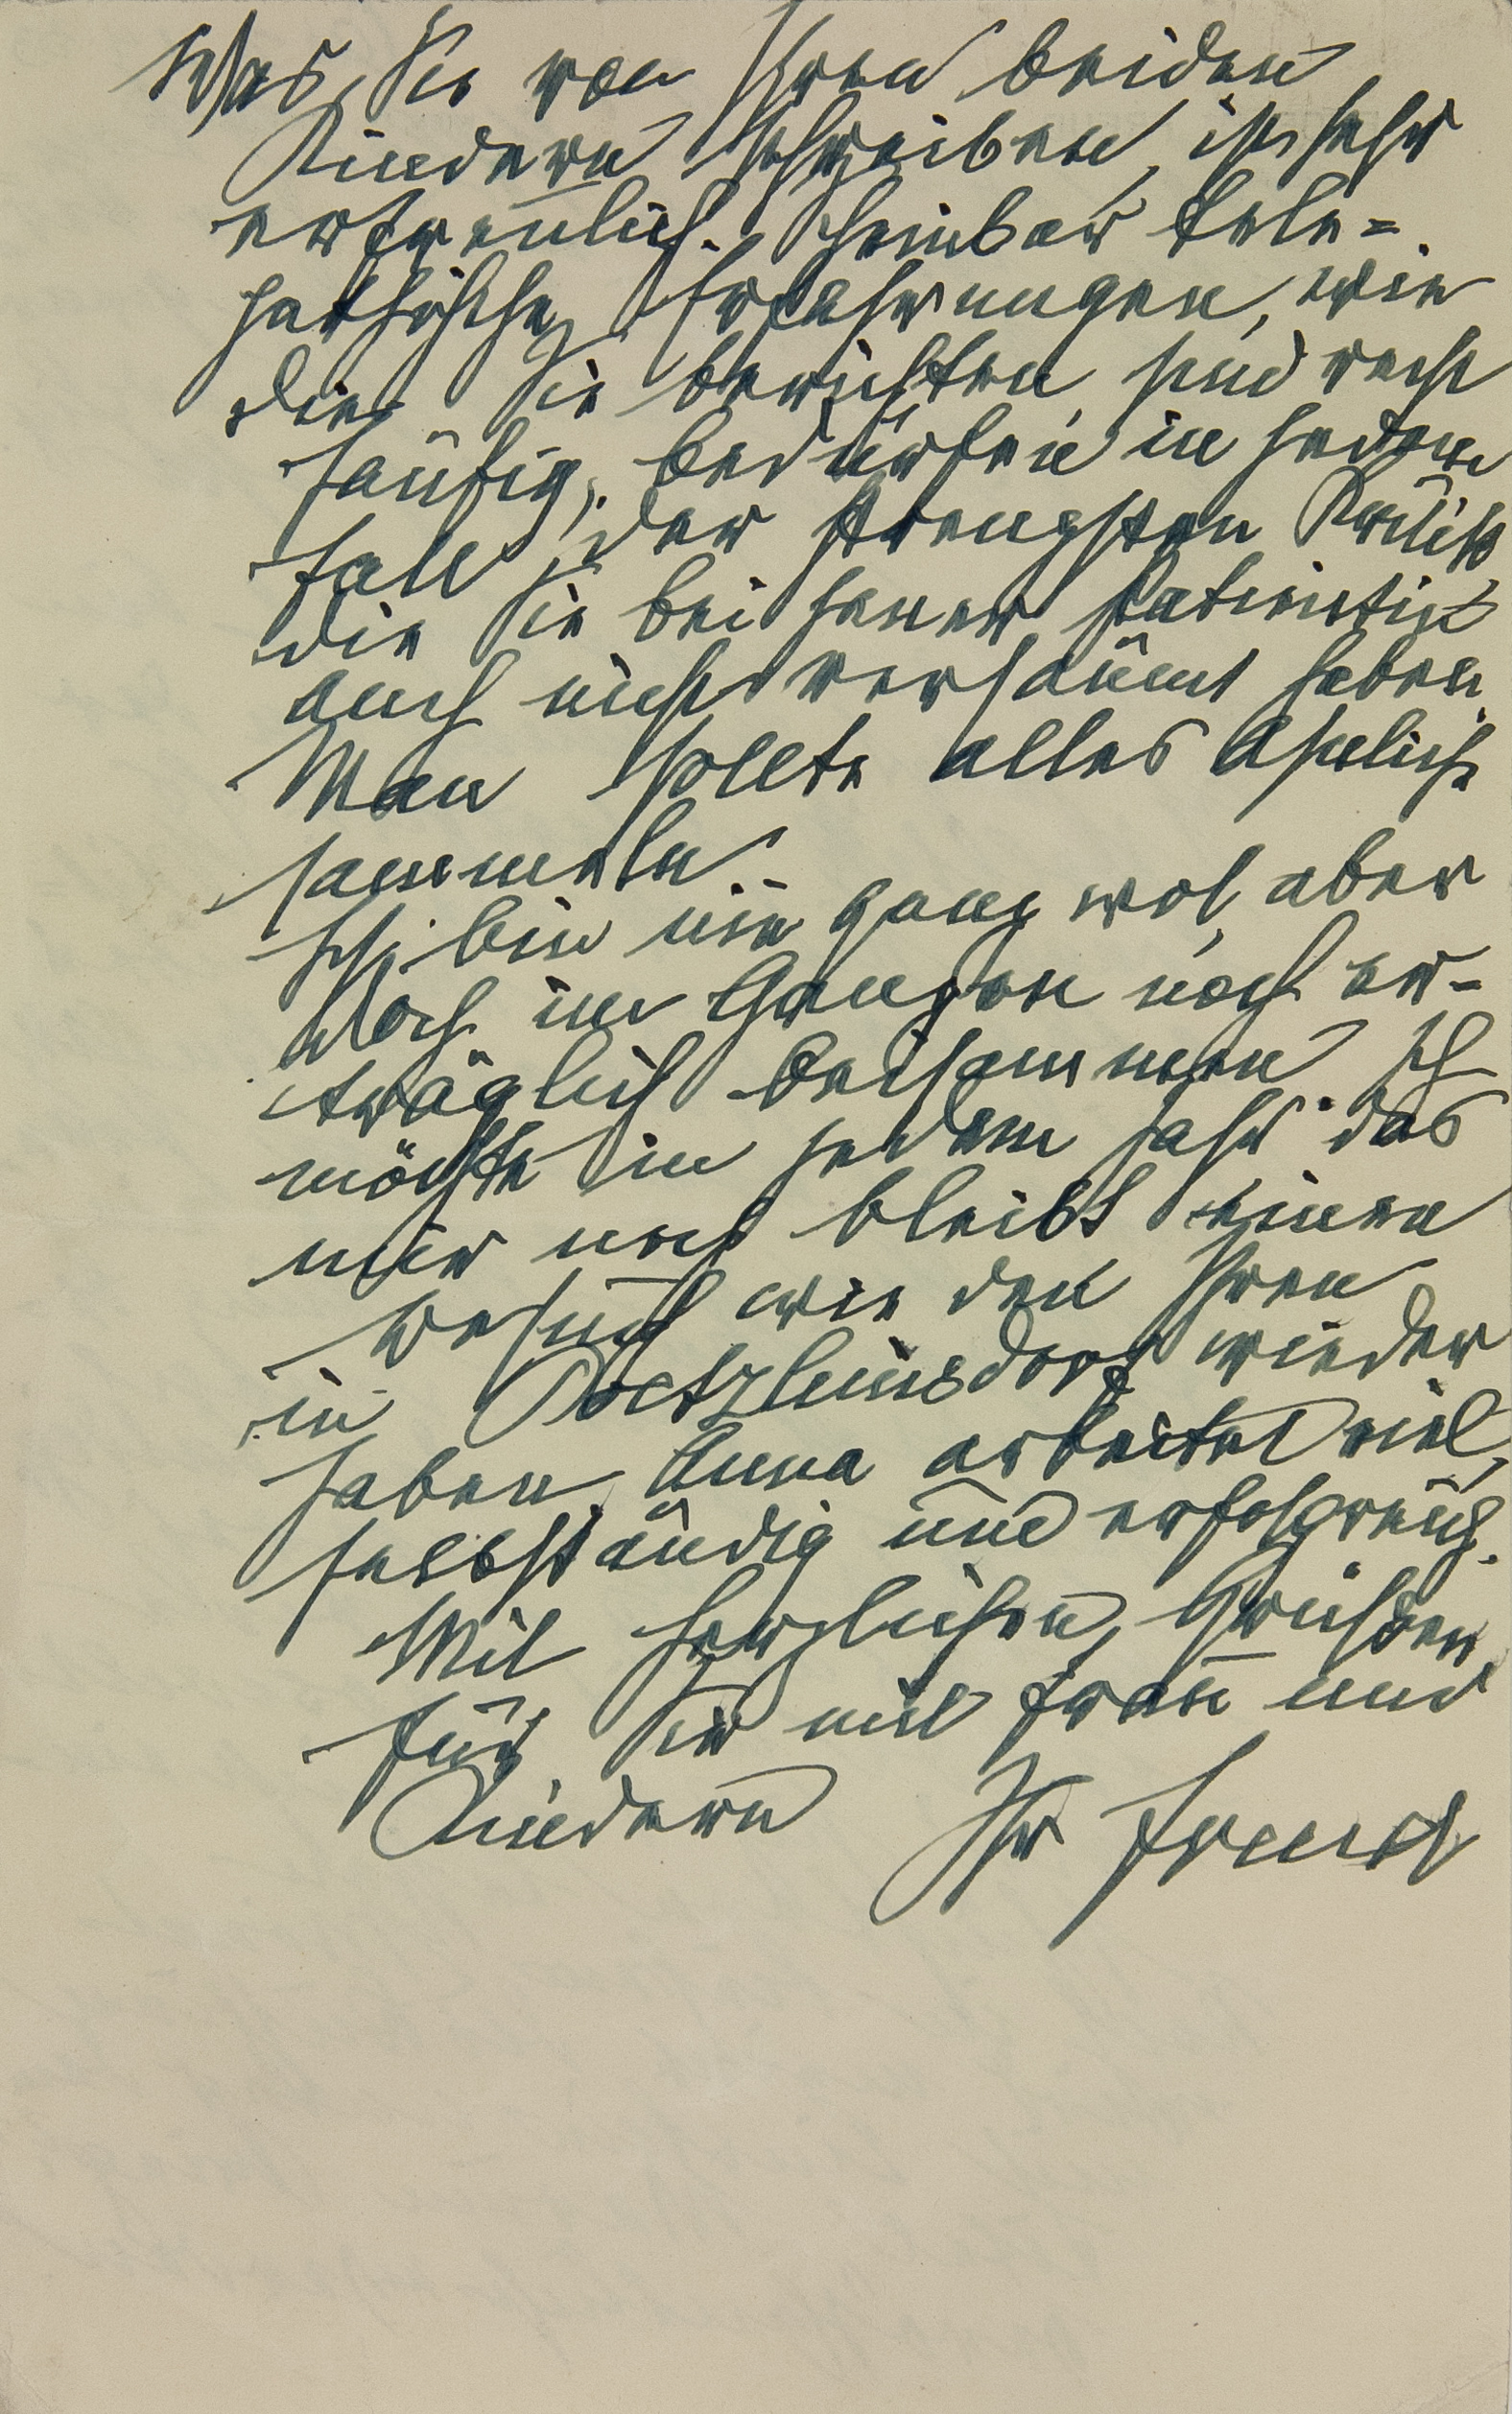 Was Sie von Ihren beiden
Kindern schreiben, ist sehr
erfreulich. Scheinbar tele=
pathische Erfahrungen, wie
die Sie berichten, sind recht
häufig, bedürfen in jedem
Fall der strengsten Kritik
die Sie bei jener Patientin
auch nicht versäumt haben.
Man sollte alles Ähnliche
sammeln.–
Ich bin nie ganz wol, aber
doch im Ganzen noch er-
träglich beisammen. Ich
möchte in jedem Jahr das
mir noch bleibt einen
Besuch wie den Ihren
in Poetzleinsdorf wieder
haben. Anna arbeitet viel,
selbständig und erfolgreich.
Mit herzlichen Grüßen
für Sie mit Frau und
Kindern Ihr Freud